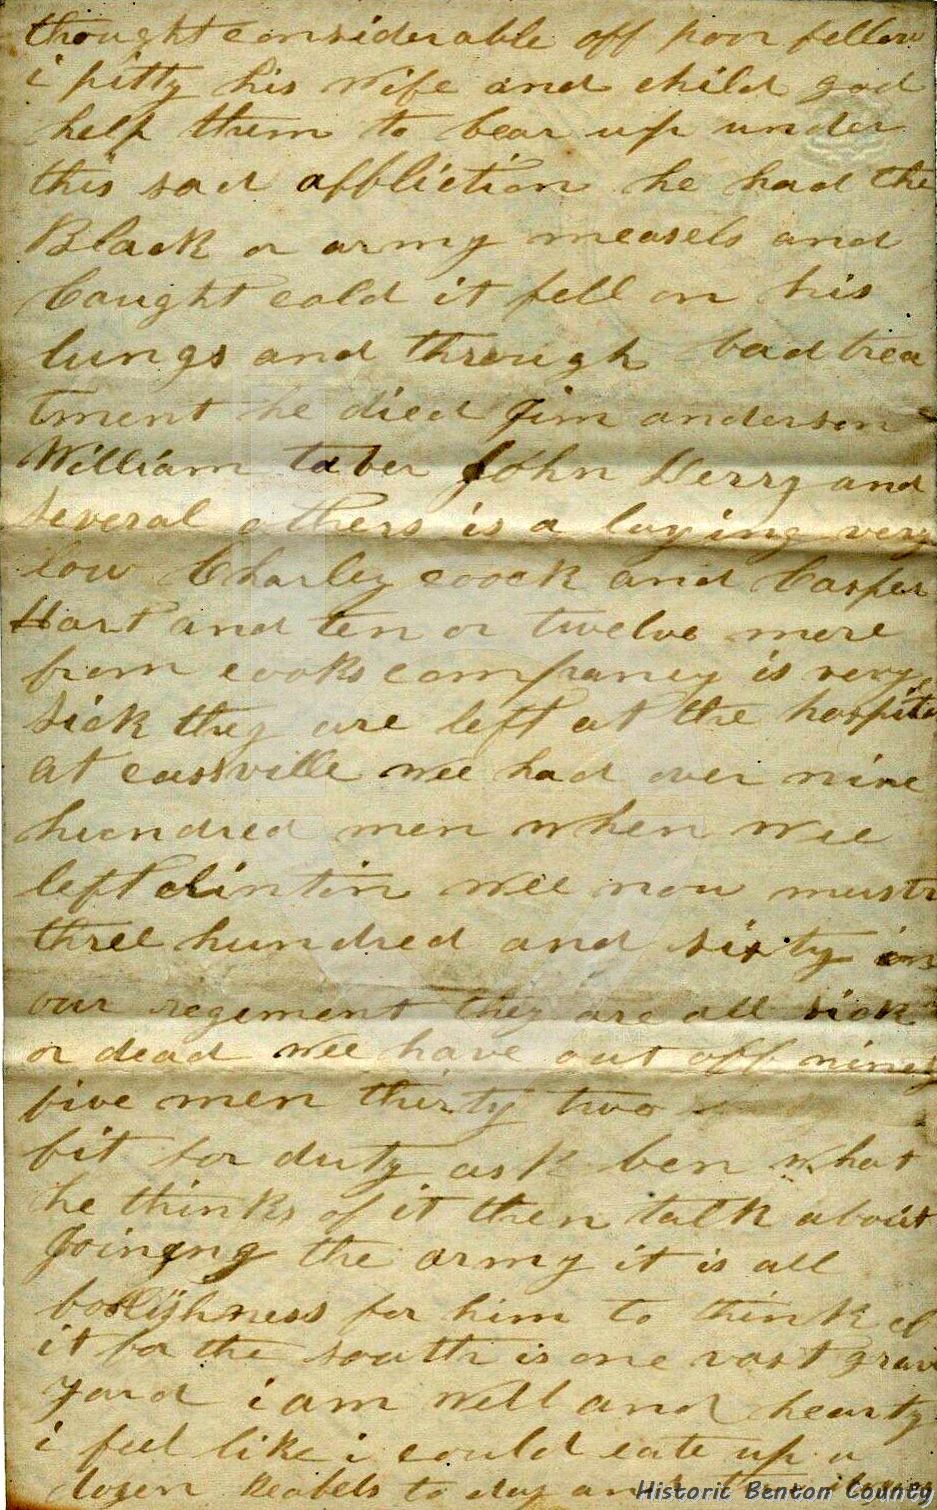 thought considerable off poor fellow
i pitty his wife and child god
help them to bear up under
this sad affliction he had the
Black or army measels and
Caught cold it fell on his
lungs and through bad trea
tment he died Jim anderson
William taber John Derry and
several others is a laying very
low Charley coock and Casper
Hart and ten or twelve more
from cooks company is very
sick they are left at the hospita
at cassville wee had over nine
hundred men when wee
left clintin wee now mustr
three hundred and sixty in
our regement they are all sick
or dead wee have out off ninety
five men thirty two
fit for duty ask ben what
he thinks of it then talk about
Joining the army it is all
foolishness for him to think of
it for the south is one vast grave
yard i am well and hearty
i feel like i could eate up a
dozen Reabels to day and
Historic Benton County